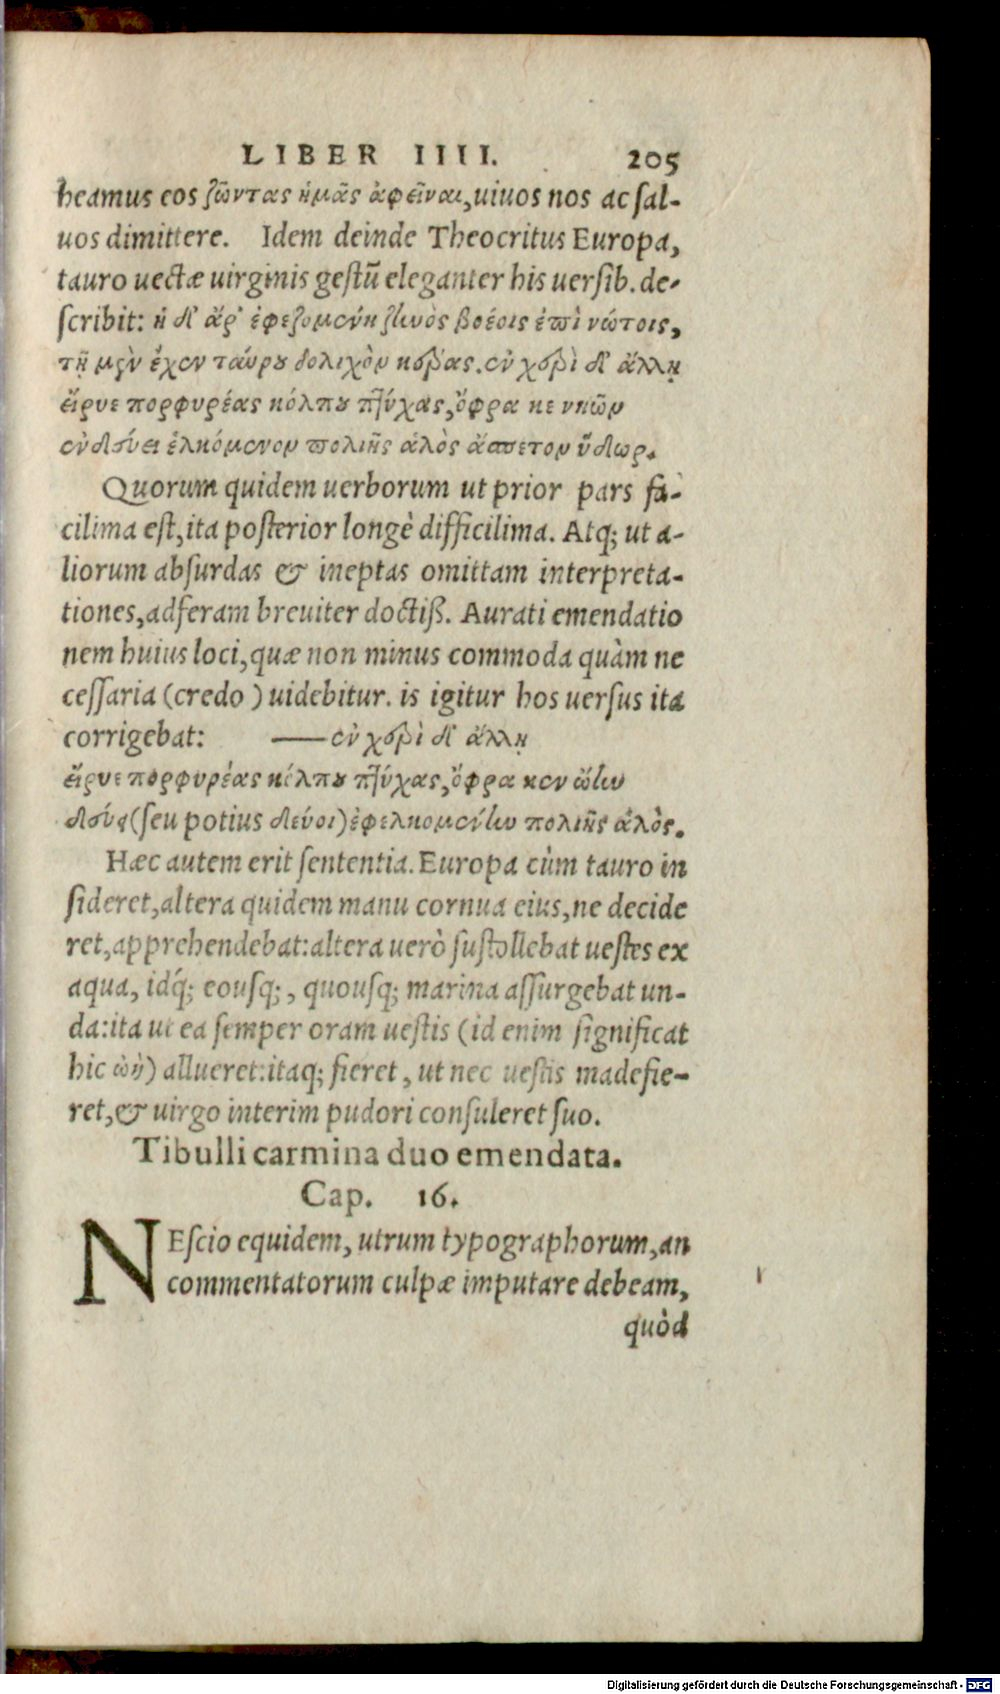 LIBER IIII. 205
beamus eos ζῶντας ἡμᾶς ἀφεῖναι, uiuos nos ac sal-
uos dimittere. Idem deinde Theocritus Europa,
tauro uectæ uirginis gestũ eleganter his uersib. de-
scribit: ἡ δ' ἄρ' ἐφεζομένη ζηνὸς βοέοις ἐπὶ νώτοις,
τῇ μὲν ἔχεν ταύρου δολιχὸν κέρας. ἐν χερὶ δ' ἄλλῃ
εἴρυε πορφυρέας κόλπου πτύχας, ὄφρα κε νηῶν
ἐνδεύει ἑλκόμενον πολιῆς ἁλὸς ἄσπετον ὕδωρ.
Quorum quidem uerborum ut prior pars fa-
cilima est, ita posterior longè difficilima. Atq; ut a-
liorum absurdas & ineptas omittam interpreta-
tiones, adferam breuiter doctiß. Aurati emendatio
nem huius loci, quæ non minus commoda quàm ne
cessaria (credo) uidebitur. is igitur hos uersus ita
corrigebat: —— ἐν χερὶ δ' ἄλλῃ
εἴρυε πορφυρέας κόλπου πτύχας, ὄφρα κεν ὤην
δεύῃ (seu potius δεύοι) ἐφελκομένην πολιῆς ἁλὸς.
Hæc autem erit sententia. Europa cùm tauro in
sideret, altera quidem manu cornua eius, ne decide
ret, apprehendebat: altera uerò sustollebat uestes ex
aqua, idq́; eousq;, quousq; marina assurgebat un-
da: ita ut ea semper oram uestis (id enim significat
hic ὠὴ) allueret: itaq; fieret, ut nec uestis madefie-
ret, & uirgo interim pudori consuleret suo.
Tibulli carmina duo emendata.
Cap. 16.
NEscio equidem, utrum typographorum, an
commentatorum culpæ imputare debeam,
quòd
Digitalisierung gefördert durch die Deutsche Forschungsgemeinschaft - DFG